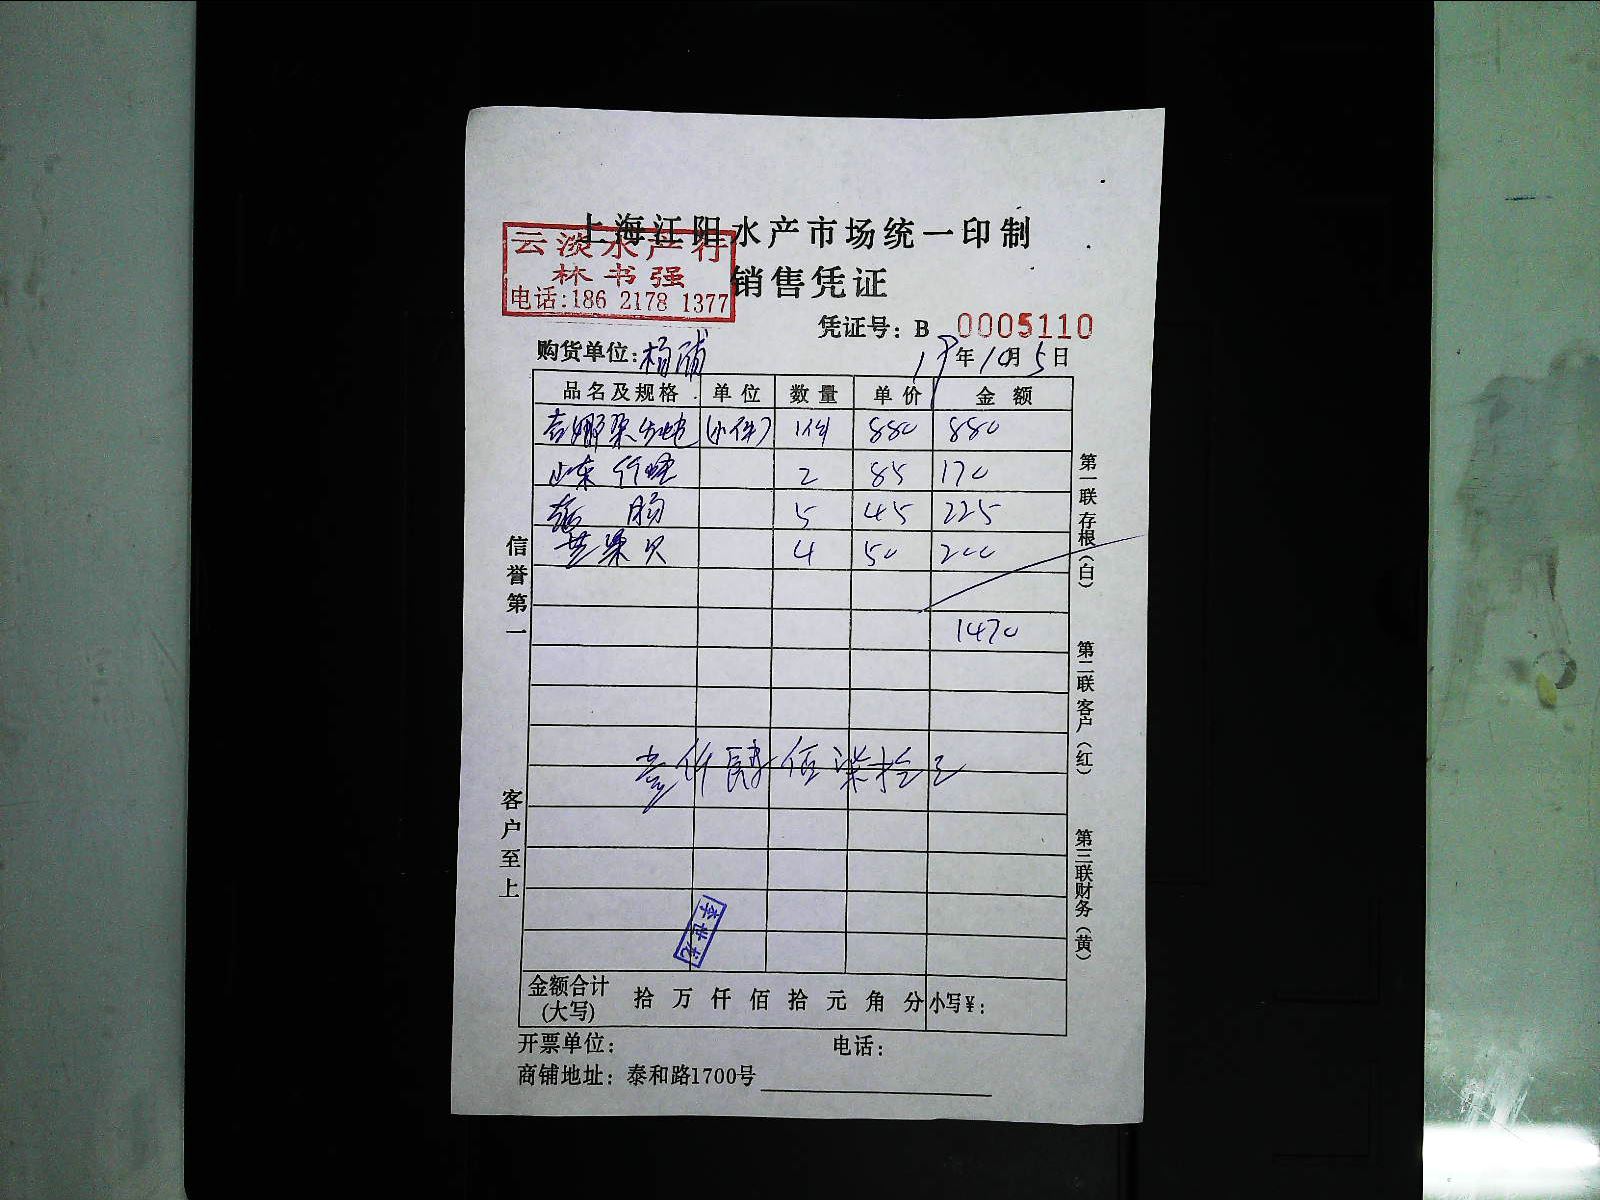 上海江阳水产市场统一印制
云淡水产行
林书强
电话:186 2178 1377
销售凭证
凭证号: B 0005110
购货单位:杨浦
19年10月5日
品名及规格 单位 数量 单价 金额
(小件) 1件 880 880
山东 竹蛏 2 85 170
肠 5 45 225
贝 4 50 200
1470
壹仟肆佰柒拾元
李世龙
金额合计(大写) 拾 万 仟 佰 拾 元 角 分 小写¥:
开票单位: 电话:
商铺地址: 泰和路1700号
信誉第一
客户至上
第一联 存根(白)
第二联 客户(红)
第三联 财务(黄)